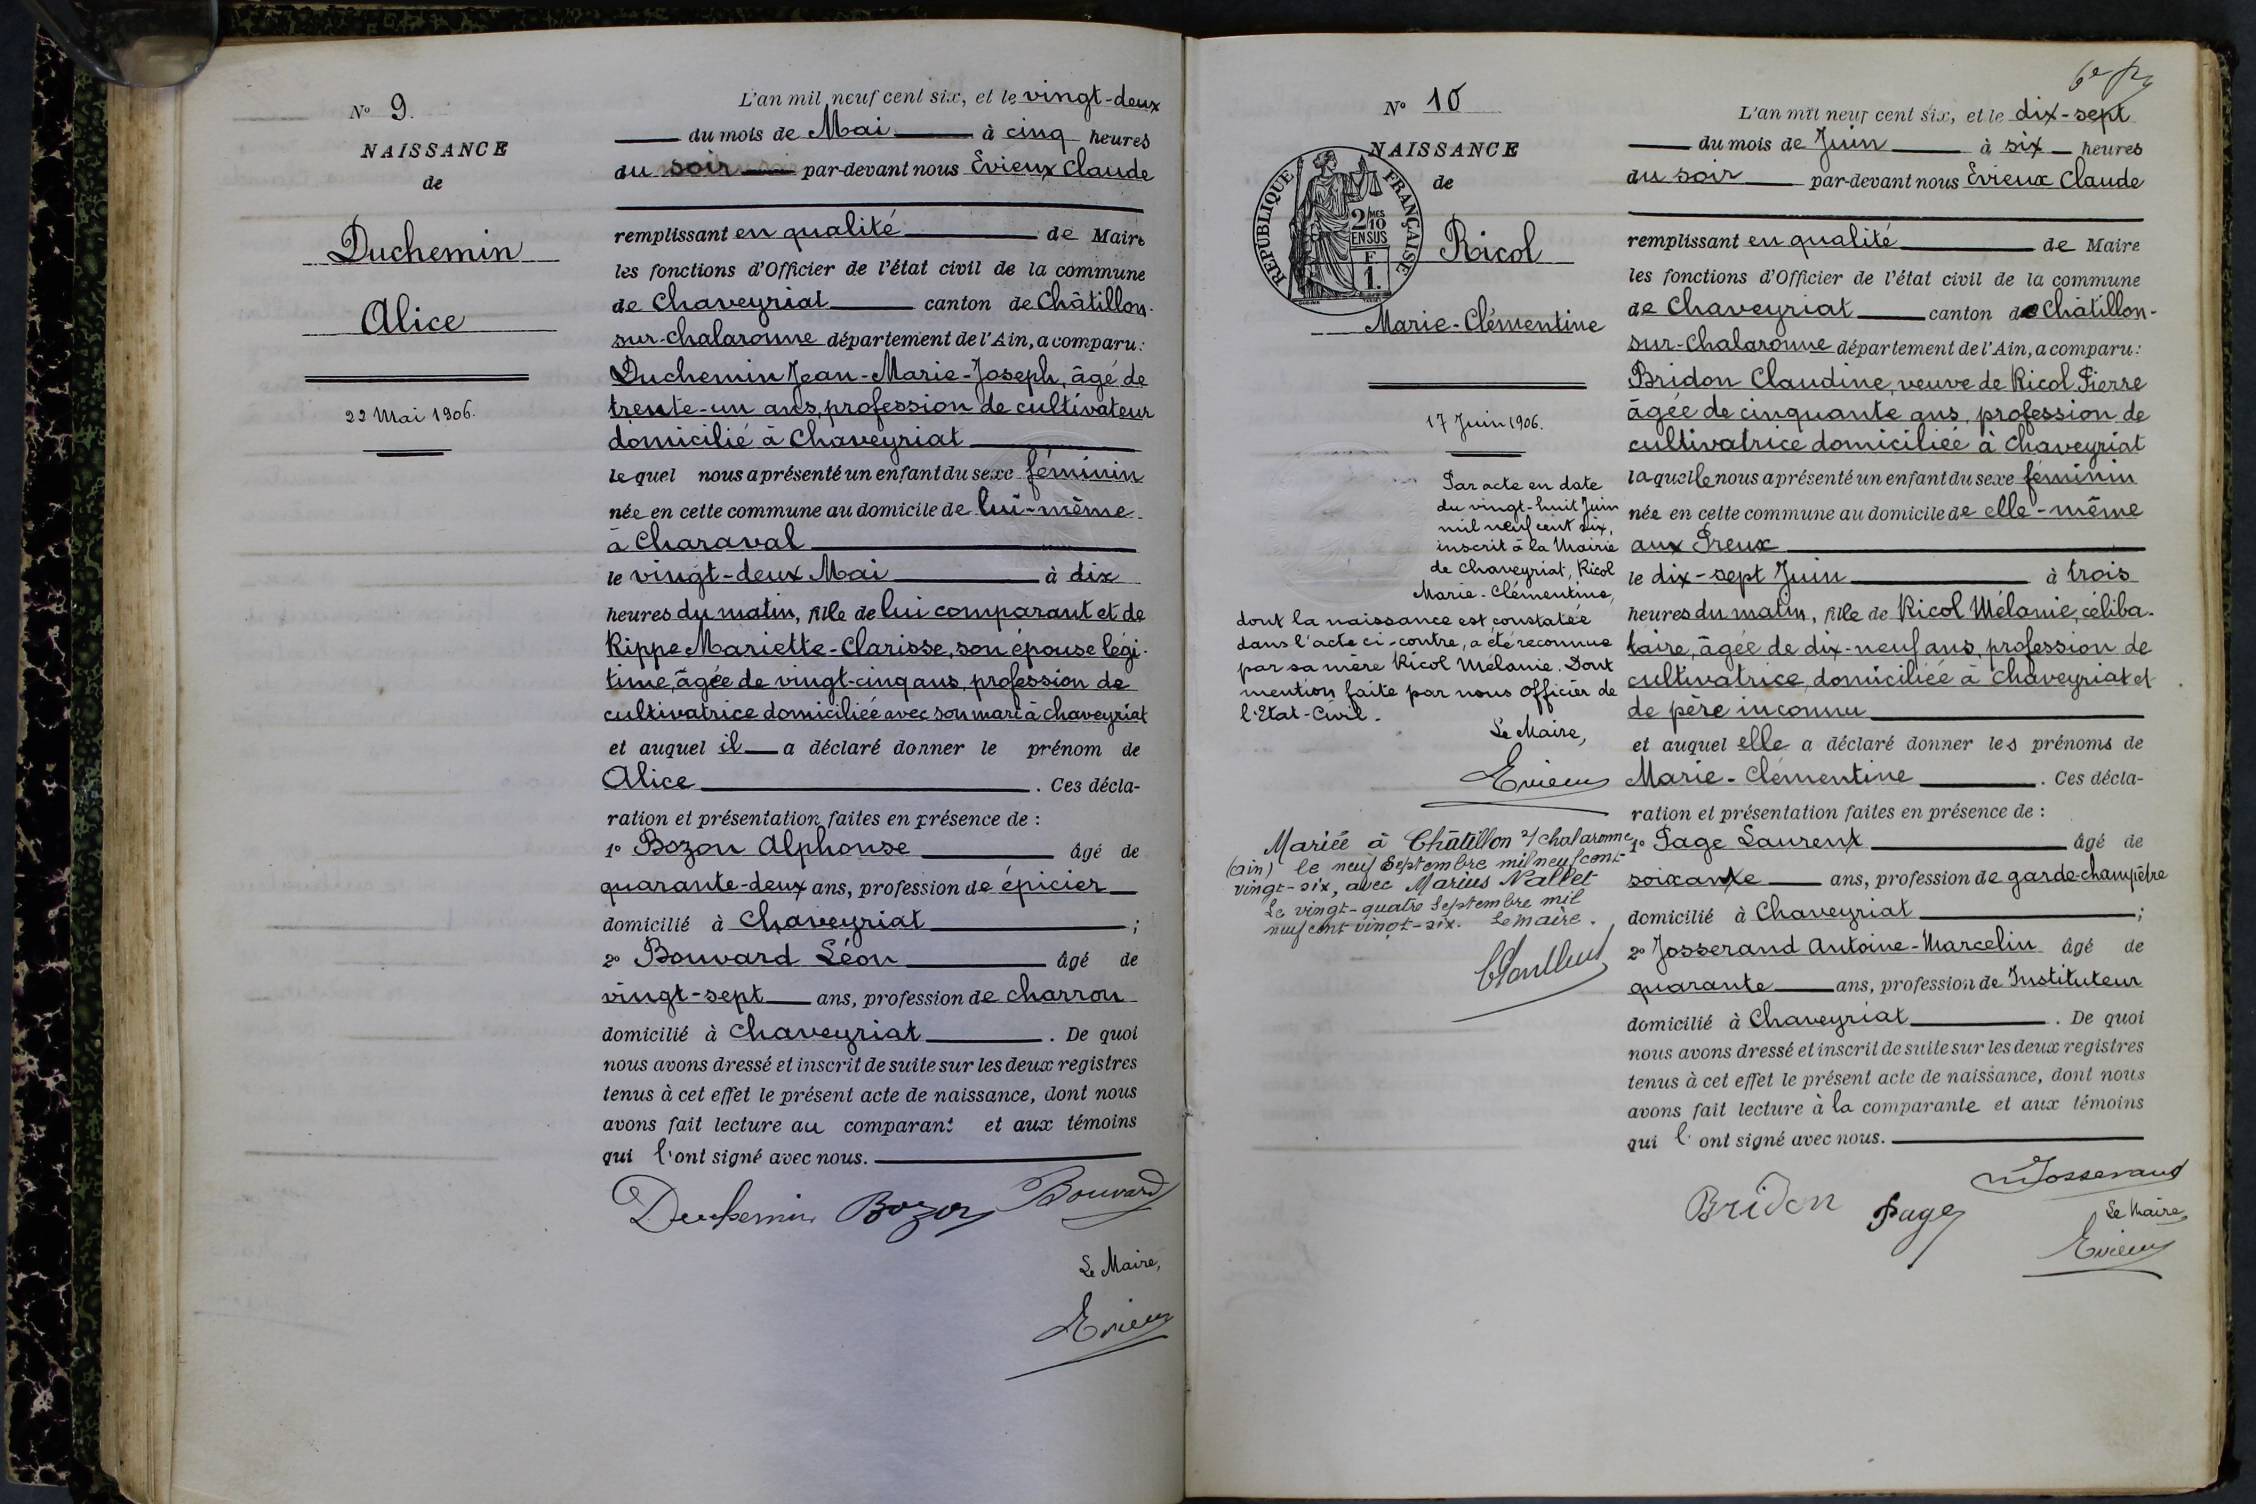 N° 9.
NAISSANCE
de
Duchemin
Alice
22 Mai 1906.
L'an mil neuf cent six, et le vingt-deux
du mois de Mai à cinq heures
du soir par-devant nous Evieux Claude
remplissant en qualité de Maire
les fonctions d'Officier de l'état civil de la commune
de Chaveyriat canton de Châtillon-
sur-Chalaronne département de l'Ain, a comparu :
Duchemin Jean-Marie-Joseph, âgé de
trente-un ans, profession de cultivateur
domicilié à Chaveyriat
lequel nous a présenté un enfant du sexe féminin
née en cette commune au domicile de lui-même
à Charaval
le vingt-deux Mai à dix
heures du matin, fille de lui comparant et de
Rippe Mariette-Clarisse, son épouse légi-
time, âgée de vingt-cinq ans, profession de
cultivatrice domiciliée avec son mari à Chaveyriat
et auquel il a déclaré donner le prénom de
Alice . Ces décla-
ration et présentation faites en présence de :
1° Bozon Alphonse âgé de
quarante-deux ans, profession de épicier
domicilié à Chaveyriat ;
2° Bouvard Léon âgé de
vingt-sept ans, profession de charron
domicilié à Chaveyriat . De quoi
nous avons dressé et inscrit de suite sur les deux registres
tenus à cet effet le présent acte de naissance, dont nous
avons fait lecture au comparant et aux témoins
qui l'ont signé avec nous.
Duchemin Bozon Bouvard
Le Maire,
Evieux
N° 10
NAISSANCE
de
RÉPUBLIQUE FRANÇAISE
2/10 MES
EN SUS
F
1.
Ricol
Marie-Clémentine
17 Juin 1906.
Par acte en date
du vingt-huit Juin
mil neuf cent six,
inscrit à la Mairie
de Chaveyriat, Ricol
Marie-Clémentine,
dont la naissance est constatée
dans l'acte ci-contre, a été reconnue
par sa mère Ricol Mélanie. Dont
mention faite par nous Officier de
l'Etat-Civil.
Le Maire,
Evieux
Mariée à Châtillon s/ Chalaronne
(Ain) le neuf Septembre mil neuf cent
vingt-six, avec Marius Nallet
Le vingt-quatre Septembre mil
neuf cent vingt-six. Le Maire.
L'an mil neuf cent six, et le dix-sept
du mois de Juin à six heures
du soir par-devant nous Evieux Claude
remplissant en qualité de Maire
les fonctions d'Officier de l'état civil de la commune
de Chaveyriat canton de Châtillon-
sur-Chalaronne département de l'Ain, a comparu :
Bridon Claudine, veuve de Ricol Pierre
âgée de cinquante ans, profession de
cultivatrice domiciliée à Chaveyriat
laquelle nous a présenté un enfant du sexe féminin
née en cette commune au domicile de elle-même
aux Preux
le dix-sept Juin à trois
heures du matin, fille de Ricol Mélanie, céliba-
taire, âgée de dix-neuf ans, profession de
cultivatrice, domiciliée à Chaveyriat et
de père inconnu
et auquel elle a déclaré donner les prénoms de
Marie-Clémentine . Ces décla-
ration et présentation faites en présence de :
1° Page Laurent âgé de
soixante ans, profession de garde-champêtre
domicilié à Chaveyriat ;
2° Josserand Antoine-Marcelin âgé de
quarante ans, profession de Instituteur
domicilié à Chaveyriat . De quoi
nous avons dressé et inscrit de suite sur les deux registres
tenus à cet effet le présent acte de naissance, dont nous
avons fait lecture à la comparante et aux témoins
qui l'ont signé avec nous.
Bridon Page Josserand
Le Maire
Evieux